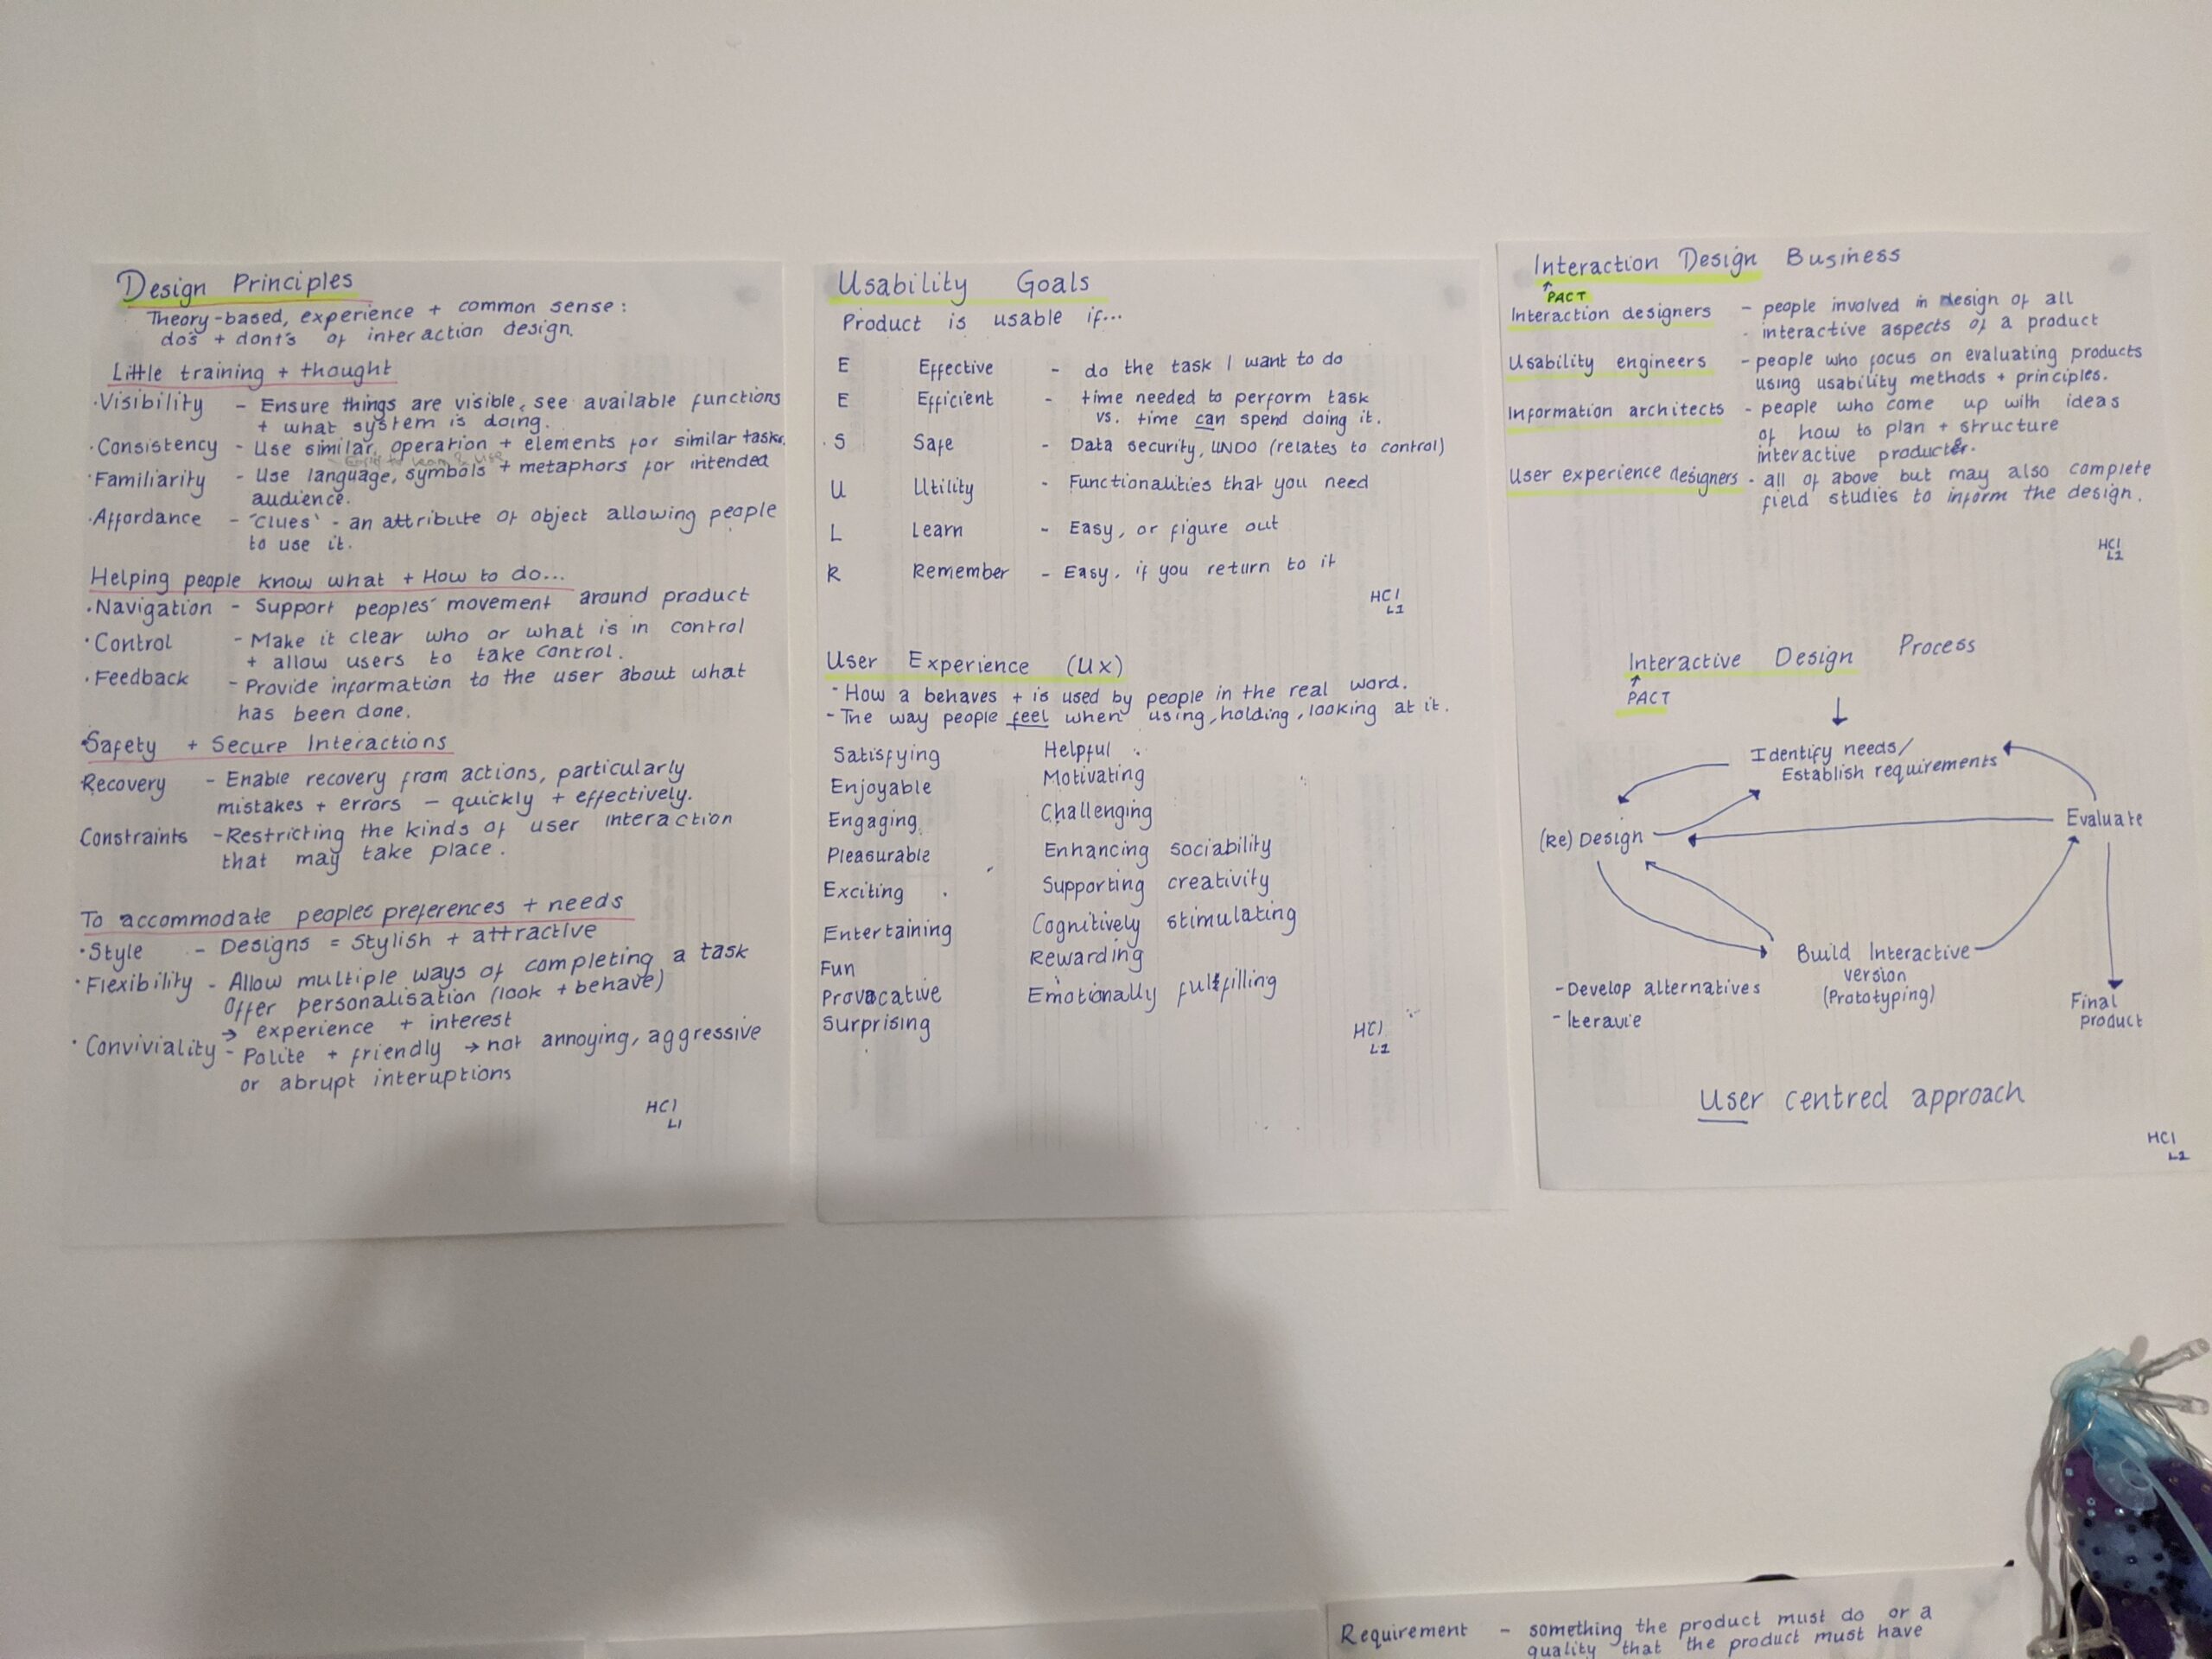 Design Principles
Theory-based, experience + common sense:
do's + dont's of interaction design.
Little training + thought
·Visibility - Ensure things are visible, see available functions
+ what system is doing.
·Consistency - Use similar, operation + elements for similar tasks.
·Familiarity - Use language, symbols + metaphors for intended
audience.
·Affordance - "Clues" - an attribute of object allowing people
to use it.
Helping people know what + How to do...
·Navigation - Support peoples' movement around product
·Control - Make it clear who or what is in control
+ allow users to take control.
·Feedback - Provide information to the user about what
has been done.
·Safety + Secure Interactions
Recovery - Enable recovery from actions, particularly
mistakes + errors - quickly + effectively.
Constraints - Restricting the kinds of user interaction
that may take place.
To accommodate peoples preferences + needs
·Style - Designs = Stylish + attractive
·Flexibility - Allow multiple ways of completing a task
Offer personalisation (look + behave)
→ experience + interest
·Conviviality - Polite + friendly → not annoying, aggressive
or abrupt interuptions
HCI
L1
Usability Goals
Product is usable if...
E Effective - do the task I want to do
E Efficient - time needed to perform task
vs. time can spend doing it.
S Safe - Data security, UNDO (relates to control)
U Utility - Functionalities that you need
L Learn - Easy, or figure out
R Remember - Easy, if you return to it
HCI
L1
User Experience (UX)
- How a behaves + is used by people in the real word.
- The way people feel when using, holding, looking at it.
Satisfying Helpful
Enjoyable Motivating
Engaging Challenging
Pleasurable Enhancing sociability
Exciting Supporting creativity
Entertaining Cognitively stimulating
Fun Rewarding
Provocative Emotionally fulfilling
Surprising
HCI
L1
Interaction Design Business
↑
PACT
Interaction designers - people involved in design of all
- interactive aspects of a product
Usability engineers - people who focus on evaluating products
using usability methods + principles.
Information architects - people who come up with ideas
of how to plan + structure
interactive products.
User experience designers - all of above but may also complete
field studies to inform the design.
HCI
L1
Interactive Design Process
↑
PACT
Identify needs/
Establish requirements
Evaluate
(Re) Design
Build Interactive
version
(Prototyping)
- Develop alternatives
- Iteravie
Final
product
User centred approach
HCI
L1
Requirement - something the product must do or a
quality that the product must have